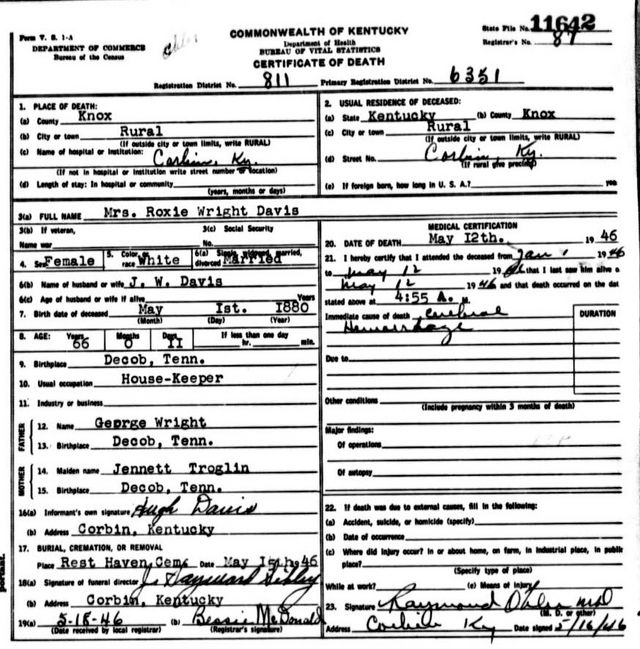 Form V. S. 1-A
DEPARTMENT OF COMMERCE
Bureau of the Census
COMMONWEALTH OF KENTUCKY
Department of Health
BUREAU OF VITAL STATISTICS
CERTIFICATE OF DEATH
State File No. 11642
Registrar's No. 87
Registration District No. 811 Primary Registration District No. 6351
1. PLACE OF DEATH:
(a) County Knox
(b) City or town Rural
(If outside city or town limits, write RURAL)
(c) Name of hospital or institution: Corbin, Ky.
(If not in hospital or institution write street number or location)
(d) Length of stay: In hospital or community
(years, months or days)
2. USUAL RESIDENCE OF DECEASED:
(a) State Kentucky (b) County Knox
(c) City or town Rural
(If outside city or town limits, write RURAL)
(d) Street No. Corbin, Ky.
(If rural give precinct)
(e) If foreign born, how long in U. S. A.? yes
3(a) FULL NAME Mrs. Roxie Wright Davis
3(b) If veteran,
Name war
3(c) Social Security
No.
4. Sex Female 5. Color or race White 6(a) Single, widowed, married, divorced Married
6(b) Name of husband or wife J. W. Davis
6(c) Age of husband or wife if alive Years
7. Birth date of deceased May Ist. I880
(Month) (Day) (Year)
8. AGE: Years 66 Months 0 Days II If less than one day hr. min.
9. Birthplace Decob, Tenn.
10. Usual occupation House-Keeper
11. Industry or business
FATHER
12. Name George Wright
13. Birthplace Decob, Tenn.
MOTHER
14. Maiden name Jennett Troglin
15. Birthplace Decob, Tenn.
16(a) Informant's own signature Hugh Davis
(b) Address Corbin, Kentucky
17. BURIAL, CREMATION, OR REMOVAL
Place Rest Haven Cem. Date May 46
18(a) Signature of funeral director J.
(b) Address Corbin, Kentucky
19(a) 5-18-46 (b) Bessie McDonald
(Date received by local registrar) (Registrar's signature)
MEDICAL CERTIFICATION
20. DATE OF DEATH May 12th. 1946
21. I hereby certify that I attended the deceased from Jan 1 1946
to May 12 1946 that I last saw him alive o
May 12 1946 and that death occurred on the dat
stated above at 4:55 A. m.
Immediate cause of death Cerebral
Hemorrhage
DURATION
Due to
Other conditions
(Include pregnancy within 3 months of death)
Major findings:
Of operations
Of autopsy
22. If death was due to external causes, fill in the following:
(a) Accident, suicide, or homicide (specify)
(b) Date of occurrence
(c) Where did injury occur? In or about home, on farm, in industrial place, in public
place?
(Specify type of place)
While at work? (e) Means of Injury
23. Signature Raymond MD
(M. D. or other)
Address Corbin Ky Date signed 5/16/46